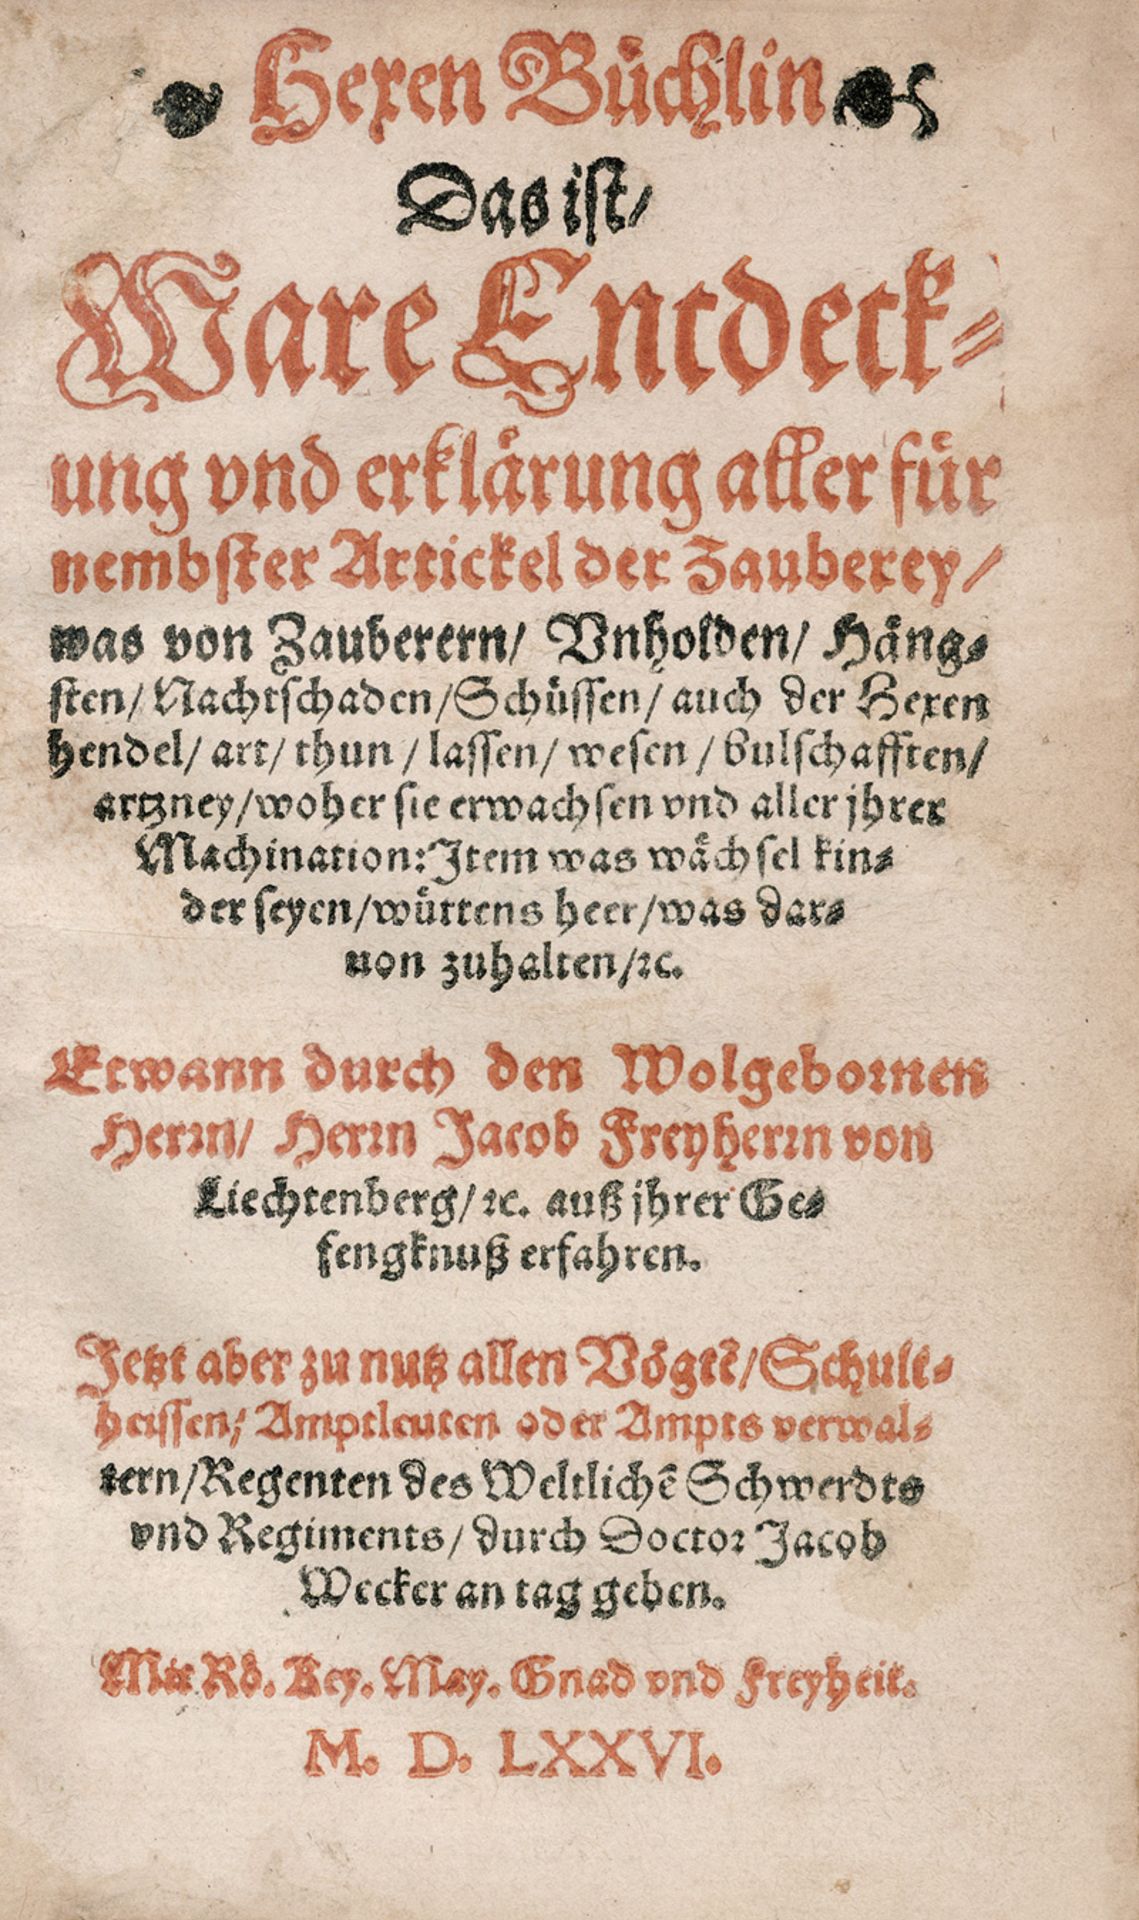 Hexen Büchlin
Das ist/
Ware Entdeck-
ung vnd erklärung aller für
nembster Artickel der Zauberey/
was von Zauberern/ Vnholden/ Häng-
sten/ Nachtschaden/ Schüssen/ auch der Hexen
hendel/ art/ thun/ lassen/ wesen/ bulschafften/
artzney/ woher sie erwachsen vnd aller jhrer
Machination: Item was wächsel kin-
der seyen/ wüttens heer/ was dar-
uon zuhalten/ ꝛc.
Etwann durch den Wolgebornen
Herrn/ Herrn Jacob Freyherrn von
Liechtenberg/ ꝛc. auß jhrer Ge-
fengknuß erfahren.
Jetzt aber zu nutz allen Vögtē/ Schult-
heissen/ Amptleuten oder Ampts verwal-
tern/ Regenten des Weltlichē Schwerdts
vnd Regiments/ durch Doctor Jacob
Wecker an tag geben.
Mit Rö. Key. May. Gnad vnd Freyheit.
M. D. LXXVI.